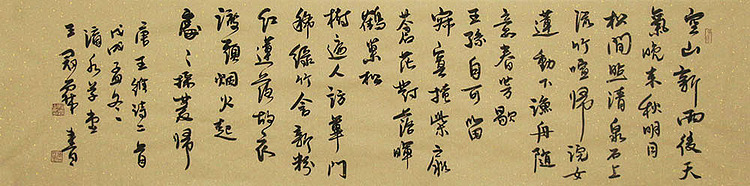 空山新雨後天
氣晚来秋明月
松間照清泉石上
流竹喧歸浣女
蓮動下漁舟隨
意春芳歇
王孫自可留
寂寞掩柴扉
蒼茫對落暉
鶴巢松
樹遍人訪蓽門
稀綠竹含新粉
紅蓮落故衣
渡頭烟火起
處々採菱歸
唐王維詩二首
戊戌孟冬
清水学堂
王冠 書